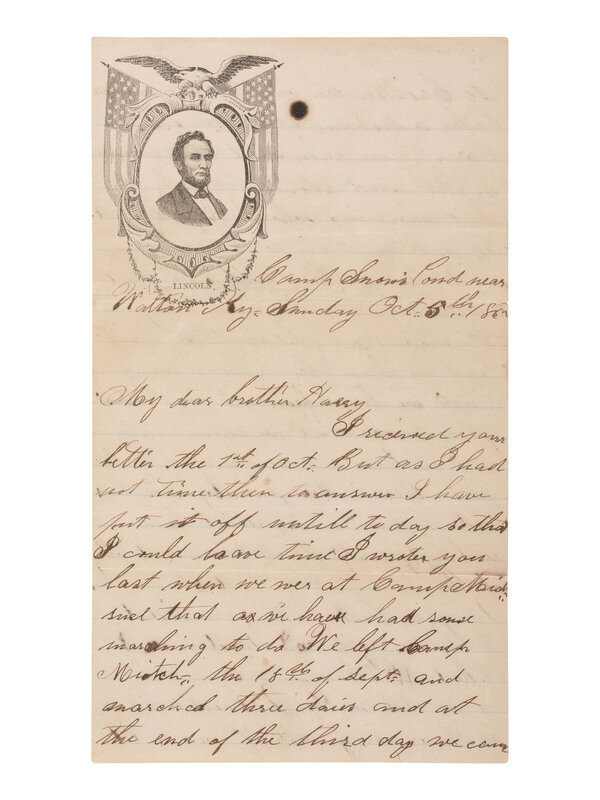 LINCOLN
Camp Snow's Pond near
Walton Ky. Sunday Oct. 5th 186
My dear brother Harry
I recieved your
letter the 1st of Oct. But as I had
not time then to answer I have
put it off untill to day so that
I could have time I wrote you
last when we wer at Camp
sinc that we have had some
marching to do We left Camp
Mitch,, the 18th of Sept. and
marched three daies and at
the end of the third day we came